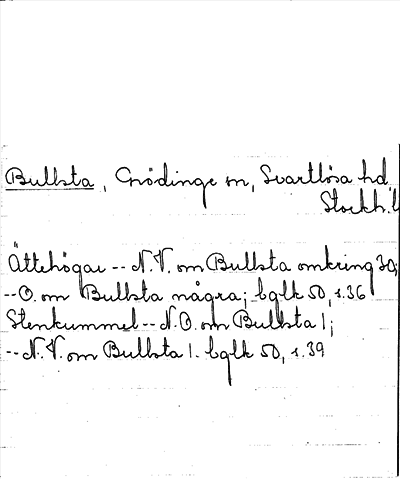 Bullsta, Grödinge sn, Svartlösa hd.
Stockh. l
Ättehögar -- N.V. om Bullsta omkring 30;
-- O. om Bullsta några; bglk 50, s.36
Stenkummel -- N.O. om Bullsta 1;
-- N.V. om Bullsta 1. bglk 50, s.39